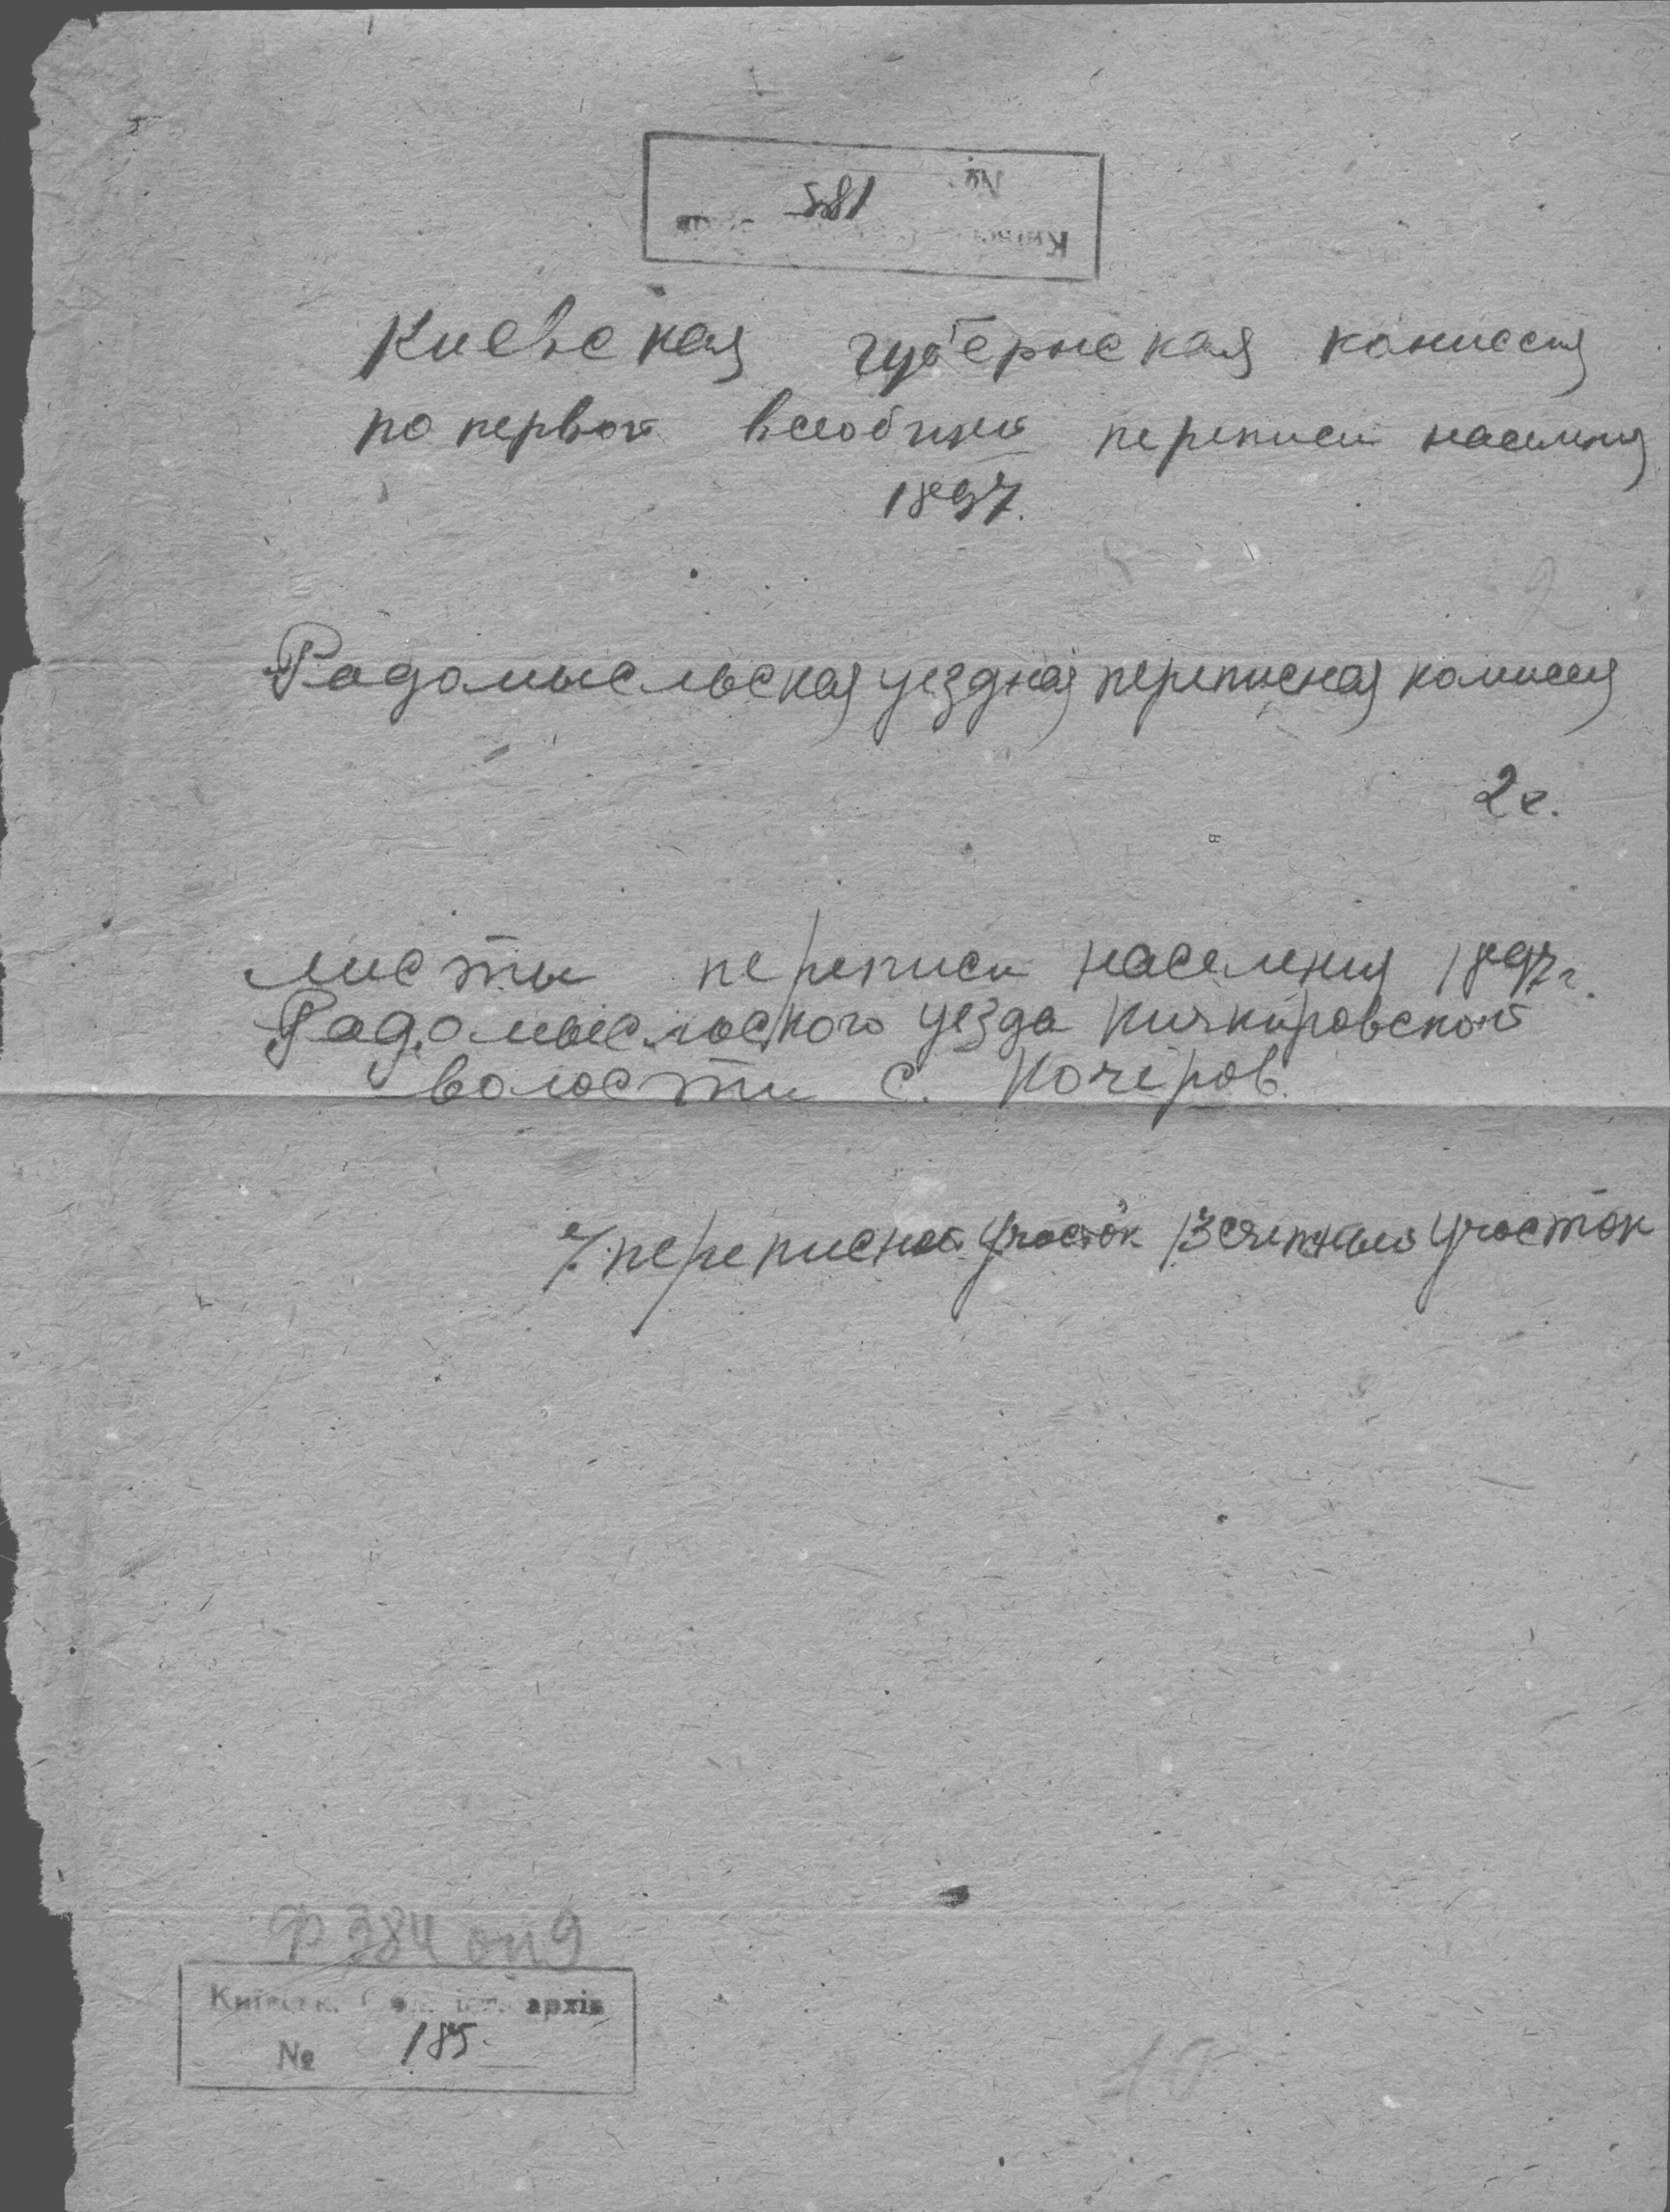 № 185
Киевская губернская комиссия
по первой всеобщей переписи населения
1897.
Радомысльская уездная переписная комиссия
2 е.
листы переписи населения 1897 г.
Радомысльского уезда Кичкировской
волости с. Кочеров.
7. переписной участок 13 счетный участок
Ф 384 оп 9
Київськ. іст. архів
№ 185
10